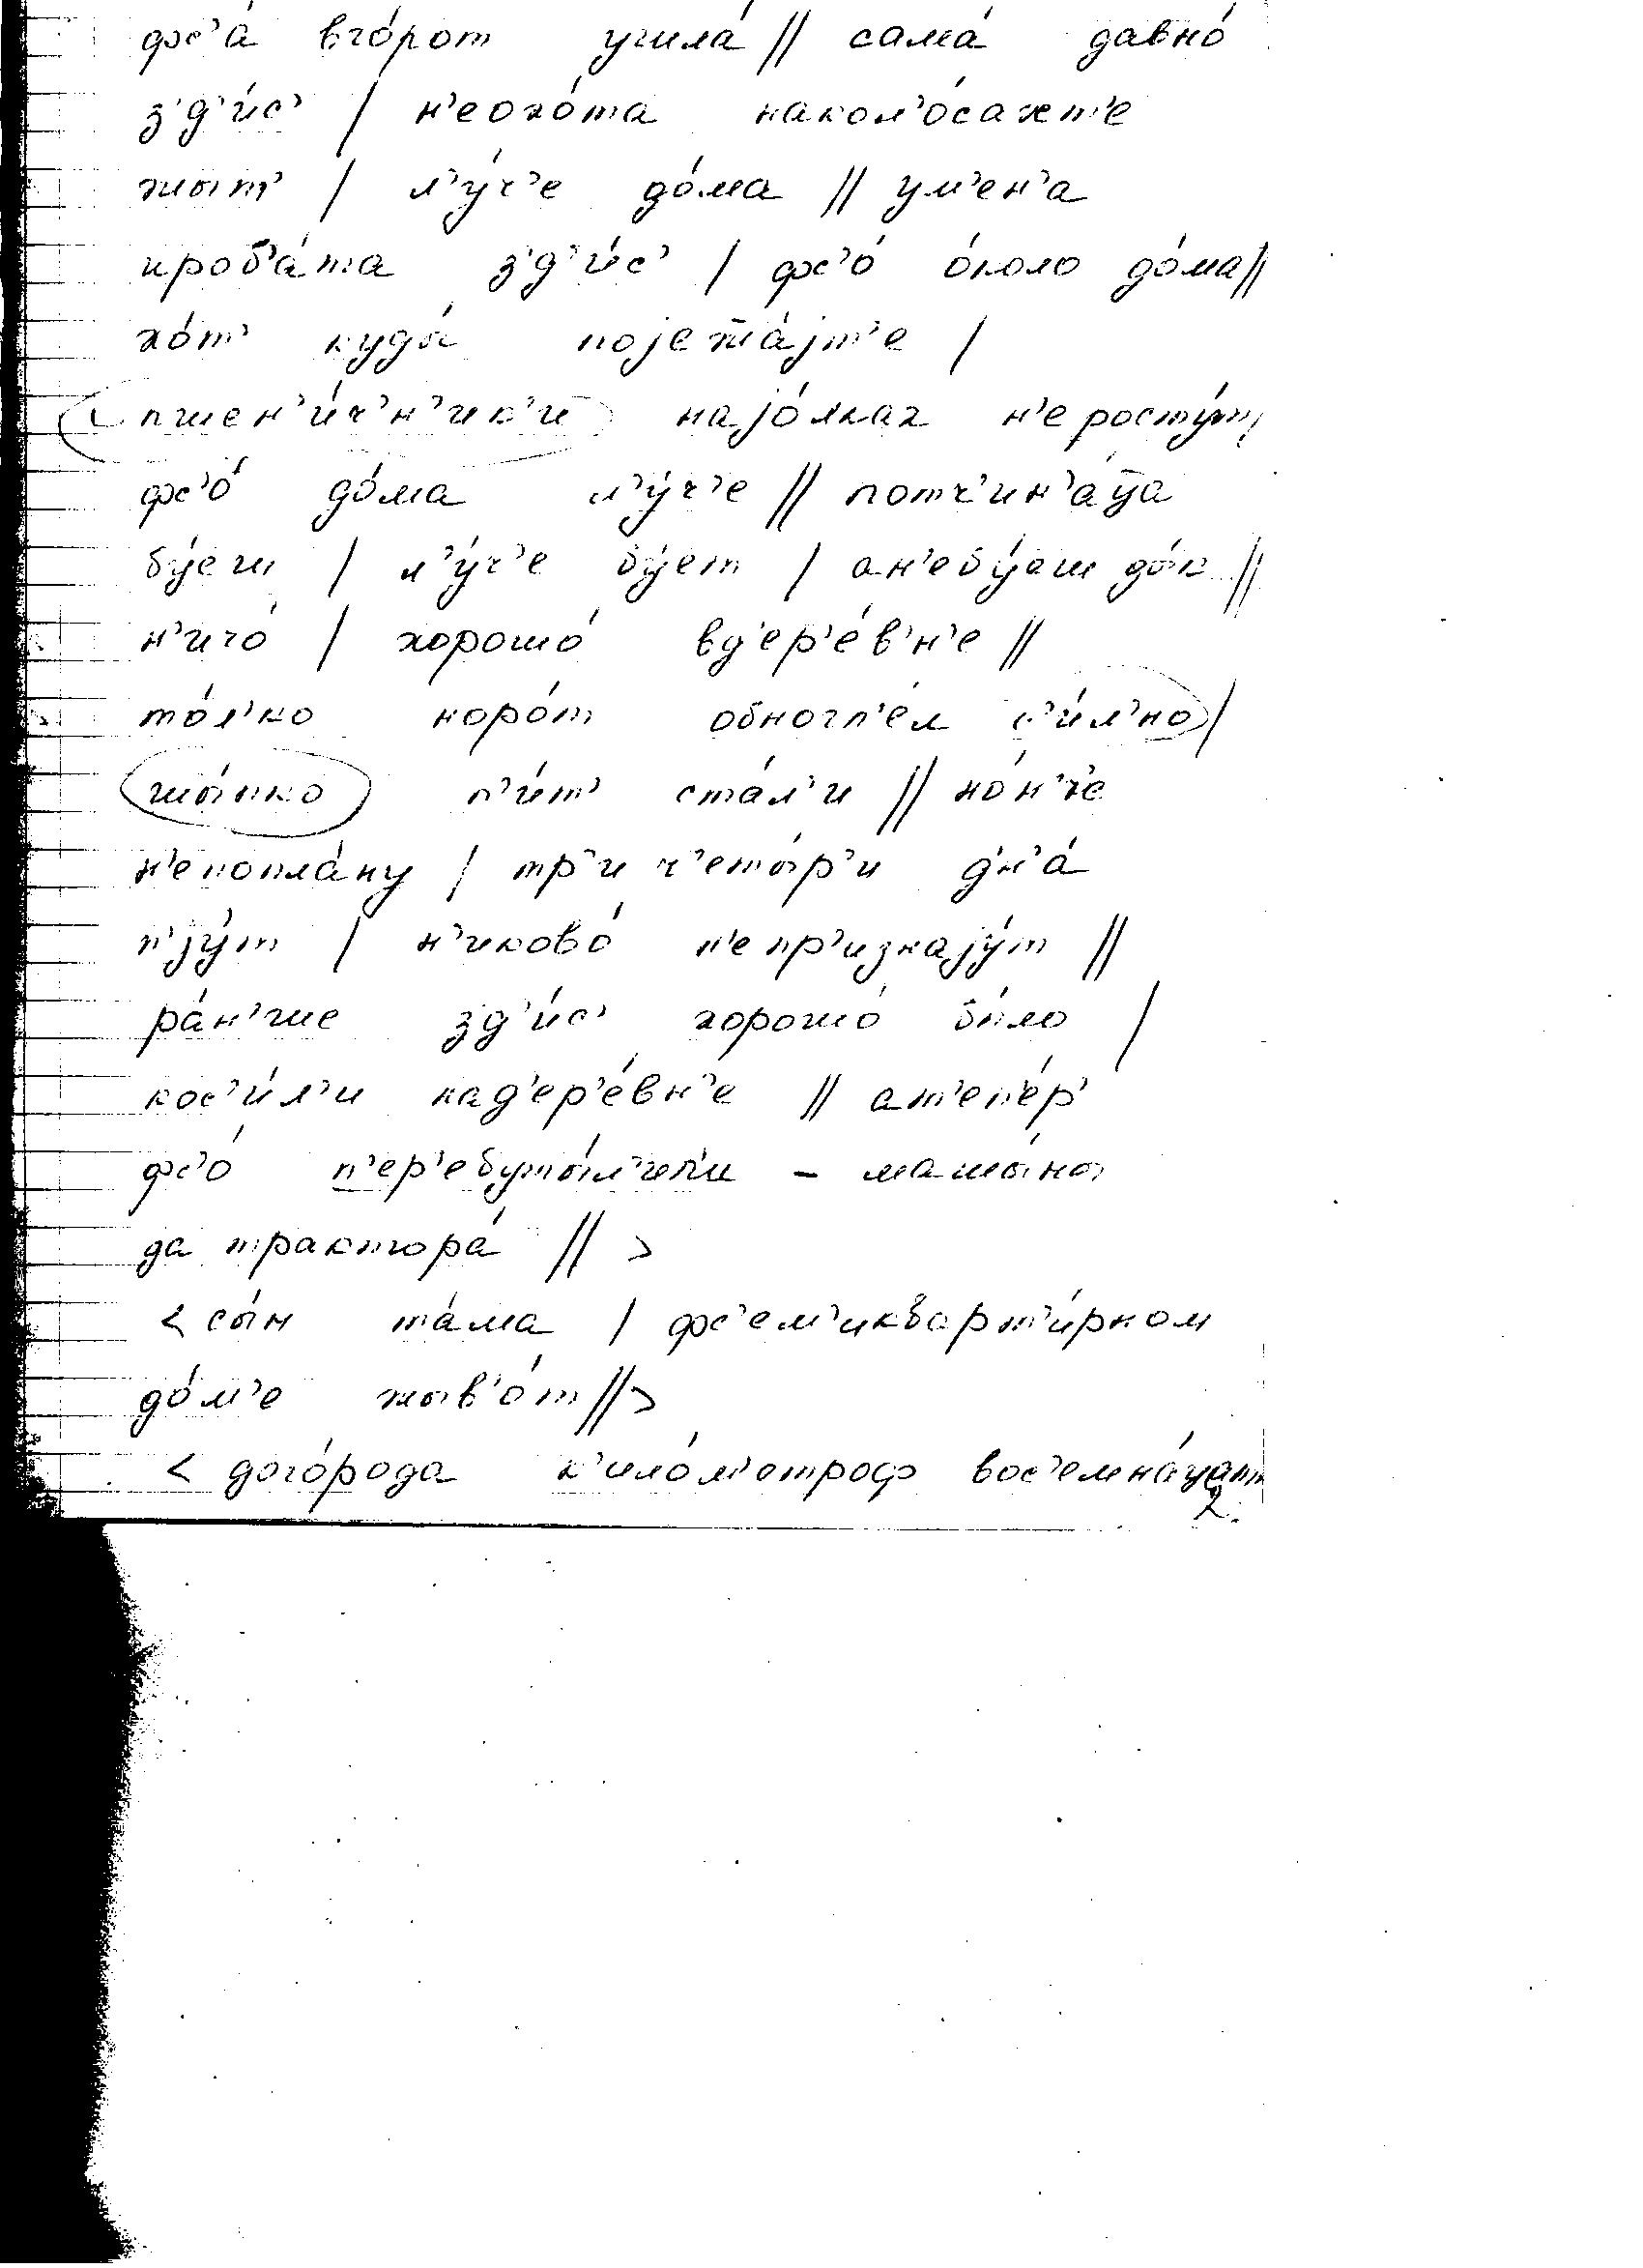 фс'а́ вго́рот ушла́ // сама́ давно́
з'д'и́с' / н'еохо́та накол'о́сахт'е
жыт' / л'у́ч'е до́ма // ум'ен'а
ироб'а́та з'д'и́с' / фс'о́ о́коло до́ма //
хо́т' куды́ поjежа́jт'е /
пшен'и́ч'н'ик'и наjо́лках н'еросту́т /
фс'о́ до́ма л'у́ч'е // потч'ин'а́ца
бу́еш / л'у́ч'е бу́ет / ан'ебу́еш до́к //
н'ичо́ / хорошо́ вд'ер'е́в'н'е //
то́л'ко норо́т обногл'е́л с'и́л'но /
шы́пко п'и́т' ста́л'и // но́н'ч'е
н'епопла́ну / тр'и ч'еты́р'и дн'а́
п'jу́т / н'иково́ н'епр'изнаjу́т //
ра́н'ше зд'и́с' хорошо́ бы́ло /
кос'и́л'и над'ер'е́вн'е // ат'еп'е́р'
фс'о́ п'ер'ебуты́л'ил'и – машы́ны
да трактора́ // >
< сы́н та́ма / фс'ем'икварт'и́рном
до́м'е жыв'о́т // >
< дого́рода к'ило́м'етроф вос'емна́цат
2.